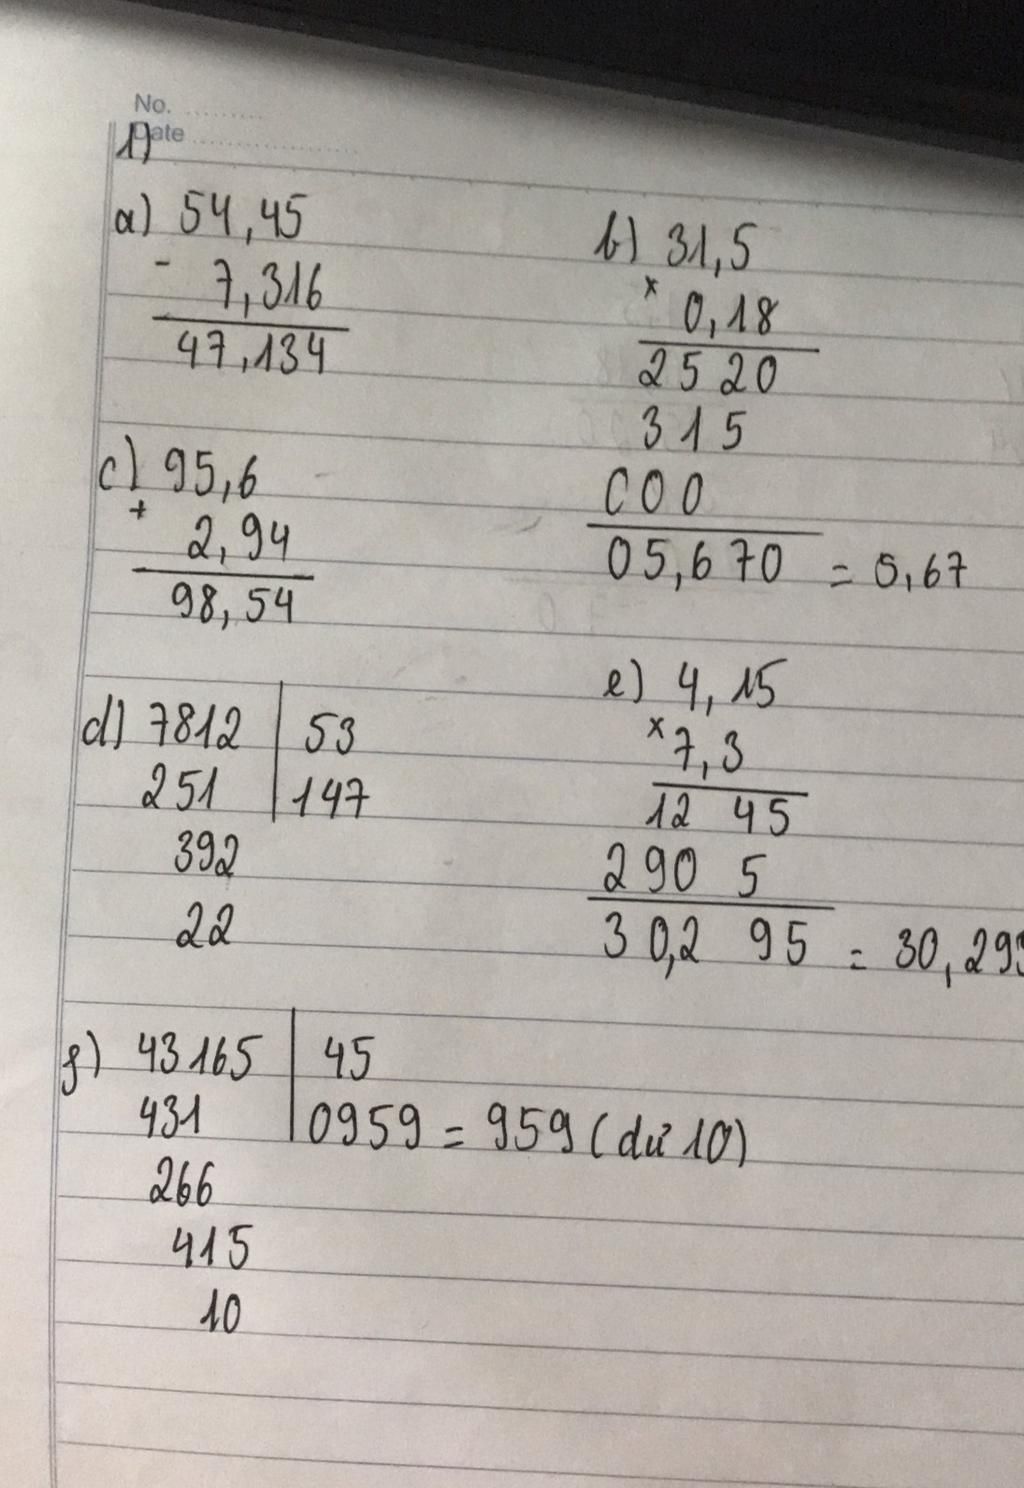 No.
Date
1)
a) 54,45
- 7,316
47,134
b) 31,5
x 0,18
2520
315
000
05,670 = 5,67
c) 95,6
+ 2,94
98,54
d) 7812 | 53
251 | 147
392
22
e) 4,15
x 7,3
12 45
290 5
30,2 95 = 30,295
g) 43165 | 45
431 | 0959 = 959 (dư 10)
266
415
10